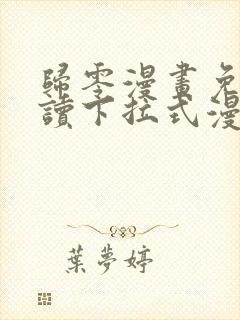 歸零漫畫免
讀下拉式漫
葉夢婷